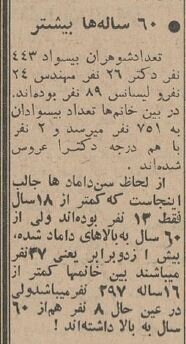 ● ۶۰ ساله‌ها بیشتر
تعدادشوهران بیسواد ۴۴۳
نفر دکتر ۲۶ نفر مهندس ۲۴
نفرو لیسانس ۸۹ نفر بوده‌اند.
در بین خانم‌ها تعداد بیسوادان
به ۷۵۱ نفر میرسد و ۲ نفر
با هم درجه دکتـرا عروس
شده‌اند .
از لحاظ سن‌داماد ها جالب
اینجاست که‌کمتر از ۱۸سال
فقط ۱۳ نفر بوده‌اند ولی از
۶۰ سال به‌بالاهای داماد شده،
بیش ا زدوبرابر یعنی ۳۷نفر
میباشند بین خانمها کمتر از
۱۶ساله ۲۹۷ نفرمیباشدولی
در عین حال ۸ نفر هم‌از ۶۰
سال به بالا داشته‌اند !